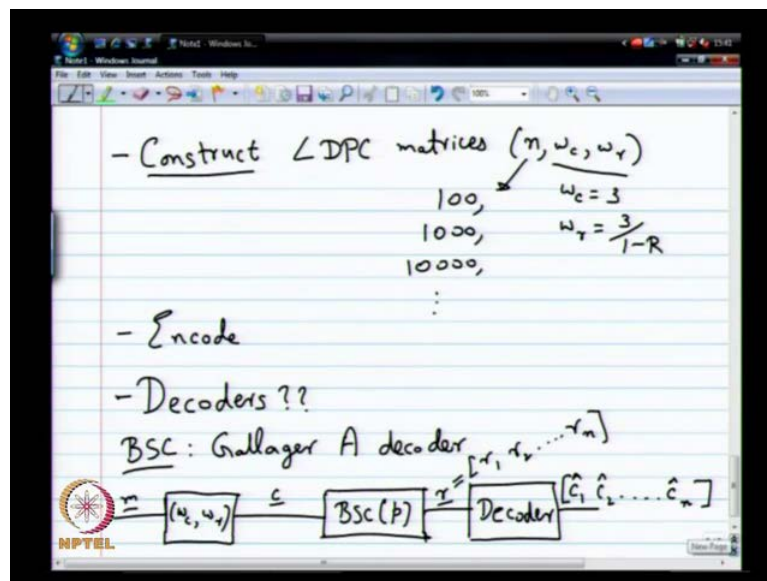 Note1 - Windows Jo...
15:41
Note1 - Windows Journal
File Edit View Insert Actions Tools Help
100%
- Construct LDPC matrices (n, w_c, w_r)
100, w_c = 3
1000, w_r = 3/1-R
10000,
⋮
- Encode
- Decoders ??
BSC : Gallager A decoder
m (w_c, w_r) c BSC(p) r = [r_1 r_2 ..... r_n] Decoder [ĉ_1 ĉ_2 ..... ĉ_n]
NPTEL
New Page